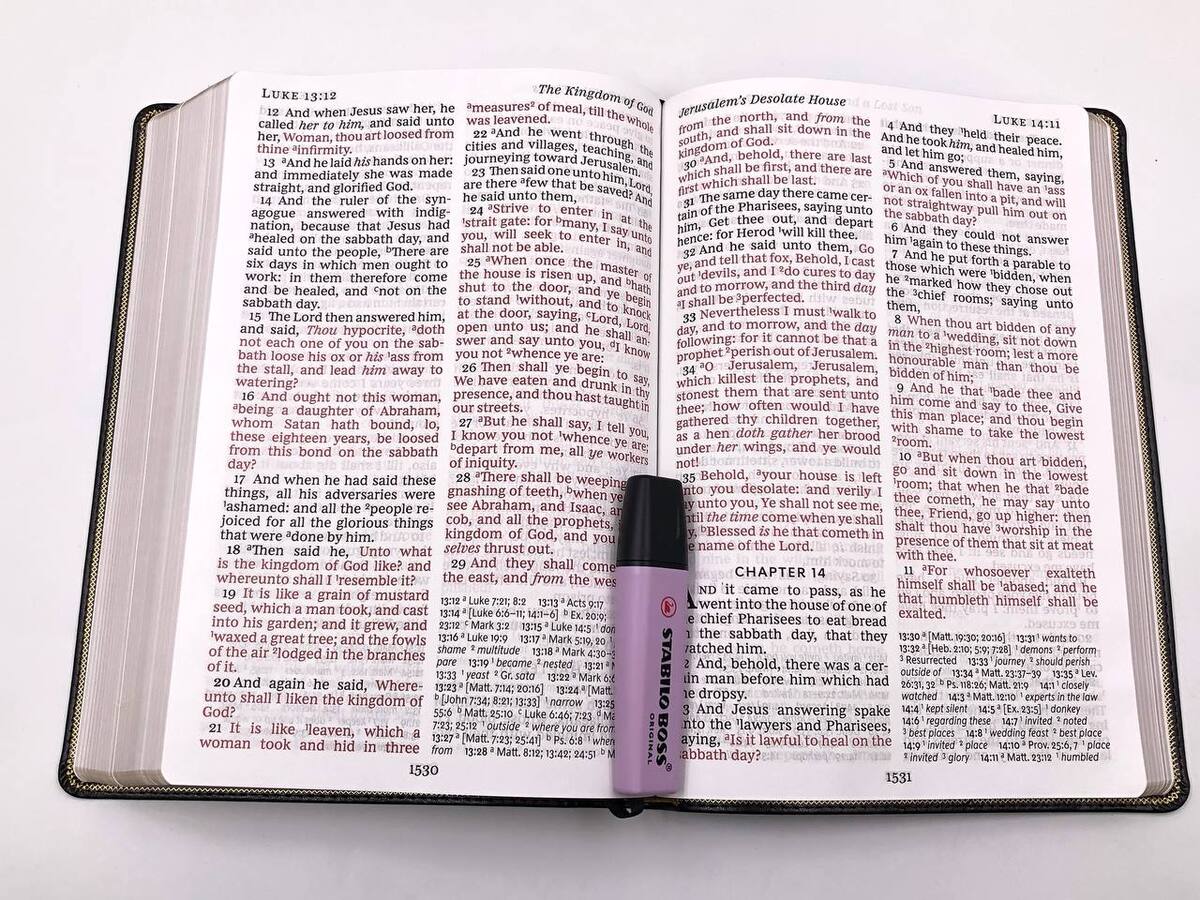 LUKE 13:12
12 And when Jesus saw her, he
called her to him, and said unto
her, Woman, thou art loosed from
thine ᵃinfirmity.
13 ᵃAnd he laid his hands on her:
and immediately she was made
straight, and glorified God.
14 And the ruler of the syn-
agogue answered with indig-
nation, because that Jesus had
ᵃhealed on the sabbath day, and
said unto the people, ᵇThere are
six days in which men ought to
work: in them therefore come
and be healed, and ᶜnot on the
sabbath day.
15 The Lord then answered him,
and said, Thou hypocrite, ᵃdoth
not each one of you on the sab-
bath loose his ox or his ¹ass from
the stall, and lead him away to
watering?
16 And ought not this woman,
ᵃbeing a daughter of Abraham,
whom Satan hath bound, lo,
these eighteen years, be loosed
from this bond on the sabbath
day?
17 And when he had said these
things, all his adversaries were
¹ashamed: and all the ²people re-
joiced for all the glorious things
that were ᵃdone by him.
18 ᵃThen said he, Unto what
is the kingdom of God like? and
whereunto shall I ¹resemble it?
19 It is like a grain of mustard
seed, which a man took, and cast
into his garden; and it grew, and
¹waxed a great tree; and the fowls
of the air ²lodged in the branches
of it.
20 And again he said, Where-
unto shall I liken the kingdom of
God?
21 It is like ¹leaven, which a
woman took and hid in three
1530
The Kingdom of God
ᵃmeasures² of meal, till the whole
was leavened.
22 ᵃAnd he went through the
cities and villages, teaching, and
journeying toward Jerusalem.
23 Then said one unto him, Lord,
are there ᵃfew that be saved? And
he said unto them,
24 ᵃStrive to enter in at the
¹strait gate: for ᵇmany, I say unto
you, will seek to enter in, and
shall not be able.
25 ᵃWhen once the master of
the house is risen up, and ᵇhath
shut to the door, and ye begin
to stand ¹without, and to knock
at the door, saying, ᶜLord, Lord,
open unto us; and he shall an-
swer and say unto you, ᵈI know
you not ²whence ye are:
26 Then shall ye begin to say,
We have eaten and drunk in thy
presence, and thou hast taught in
our streets.
27 ᵃBut he shall say, I tell you,
I know you not ¹whence ye are;
ᵇdepart from me, all ye workers
of iniquity.
28 ᵃThere shall be weeping
gnashing of teeth, ᵇwhen ye
see Abraham, and Isaac, an
cob, and all the prophets,
kingdom of God, and you
selves thrust out.
29 And they shall come
the east, and from the wes
13:12 ᵃ Luke 7:21; 8:2 13:13 ᵃ Acts 9:17
13:14 ᵃ [Luke 6:6–11; 14:1–6] ᵇ Ex. 20:9;
23:12 ᶜ Mark 3:2 13:15 ᵃ Luke 14:5 ¹ don
13:16 ᵃ Luke 19:9 13:17 ᵃ Mark 5:19, 20 ¹
shame ² multitude 13:18 ᵃ Mark 4:30–3
pare 13:19 ¹ became ² nested 13:21 ᵃ
13:33 ¹ yeast ² Gr. sata 13:22 ᵃ Mark 6:6
13:23 ᵃ [Matt. 7:14; 20:16] 13:24 ᵃ [Matt.
ᵇ [John 7:34; 8:21; 13:33] ¹ narrow 13:25
55:6 ᵇ Matt. 25:10 ᶜ Luke 6:46; 7:23 ᵈ Ma
7:23; 25:12 ¹ outside ² where you are from
13:27 ᵃ [Matt. 7:23; 25:41] ᵇ Ps. 6:8 ¹ wher
from 13:28 ᵃ Matt. 8:12; 13:42; 24:51 ᵇ M
STABILO BOSS®
ORIGINAL
Jerusalem's Desolate House
from the north, and from the
south, and shall sit down in the
kingdom of God.
30 ᵃAnd, behold, there are last
which shall be first, and there are
first which shall be last.
31 The same day there came cer-
tain of the Pharisees, saying unto
him, Get thee out, and depart
hence: for Herod ¹will kill thee.
32 And he said unto them, Go
ye, and tell that fox, Behold, I cast
out ¹devils, and I ²do cures to day
and to morrow, and the third day
ᵃI shall be ³perfected.
33 Nevertheless I must ¹walk to
day, and to morrow, and the day
following: for it cannot be that a
prophet ²perish out of Jerusalem.
34 ᵃO Jerusalem, Jerusalem,
which killest the prophets, and
stonest them that are sent unto
thee; how often would I have
gathered thy children together,
as a hen doth gather her brood
under her wings, and ye would
not!
35 Behold, ᵃyour house is left
nto you desolate: and verily I
y unto you, Ye shall not see me,
ntil the time come when ye shall
y, ᵇBlessed is he that cometh in
e name of the Lord.
CHAPTER 14
AND it came to pass, as he
went into the house of one of
e chief Pharisees to eat bread
the sabbath day, that they
atched him.
2 And, behold, there was a cer-
in man before him which had
e dropsy.
3 And Jesus answering spake
nto the ¹lawyers and Pharisees,
aying, ᵃIs it lawful to heal on the
sabbath day?
1531
LUKE 14:11
4 And they ¹held their peace.
And he took him, and healed him,
and let him go;
5 And answered them, saying,
ᵃWhich of you shall have an ¹ass
or an ox fallen into a pit, and will
not straightway pull him out on
the sabbath day?
6 And they could not answer
him ¹again to these things.
7 And he put forth a parable to
those which were ¹bidden, when
he ²marked how they chose out
the ³chief rooms; saying unto
them,
8 When thou art bidden of any
man to a ¹wedding, sit not down
in the ²highest room; lest a more
honourable man than thou be
bidden of him;
9 And he that ¹bade thee and
him come and say to thee, Give
this man place; and thou begin
with shame to take the lowest
²room.
10 ᵃBut when thou art bidden,
go and sit down in the lowest
¹room; that when he that ²bade
thee cometh, he may say unto
thee, Friend, go up higher: then
shalt thou have ³worship in the
presence of them that sit at meat
with thee.
11 ᵃFor whosoever exalteth
himself shall be ¹abased; and he
that humbleth himself shall be
exalted.
13:30 ᵃ [Matt. 19:30; 20:16] 13:31 ¹ wants to
13:32 ᵃ [Heb. 2:10; 5:9; 7:28] ¹ demons ² perform
³ Resurrected 13:33 ¹ journey ² should perish
outside of 13:34 ᵃ Matt. 23:37–39 13:35 ᵃ Lev.
26:31, 32 ᵇ Ps. 118:26; Matt. 21:9 14:1 ¹ closely
watched 14:3 ᵃ Matt. 12:10 ¹ experts in the law
14:4 ¹ kept silent 14:5 ᵃ [Ex. 23:5] ¹ donkey
14:6 ¹ regarding these 14:7 ¹ invited ² noted
³ best places 14:8 ¹ wedding feast ² best place
14:9 ¹ invited ² place 14:10 ᵃ Prov. 25:6, 7 ¹ place
² invited ³ glory 14:11 ᵃ Matt. 23:12 ¹ humbled